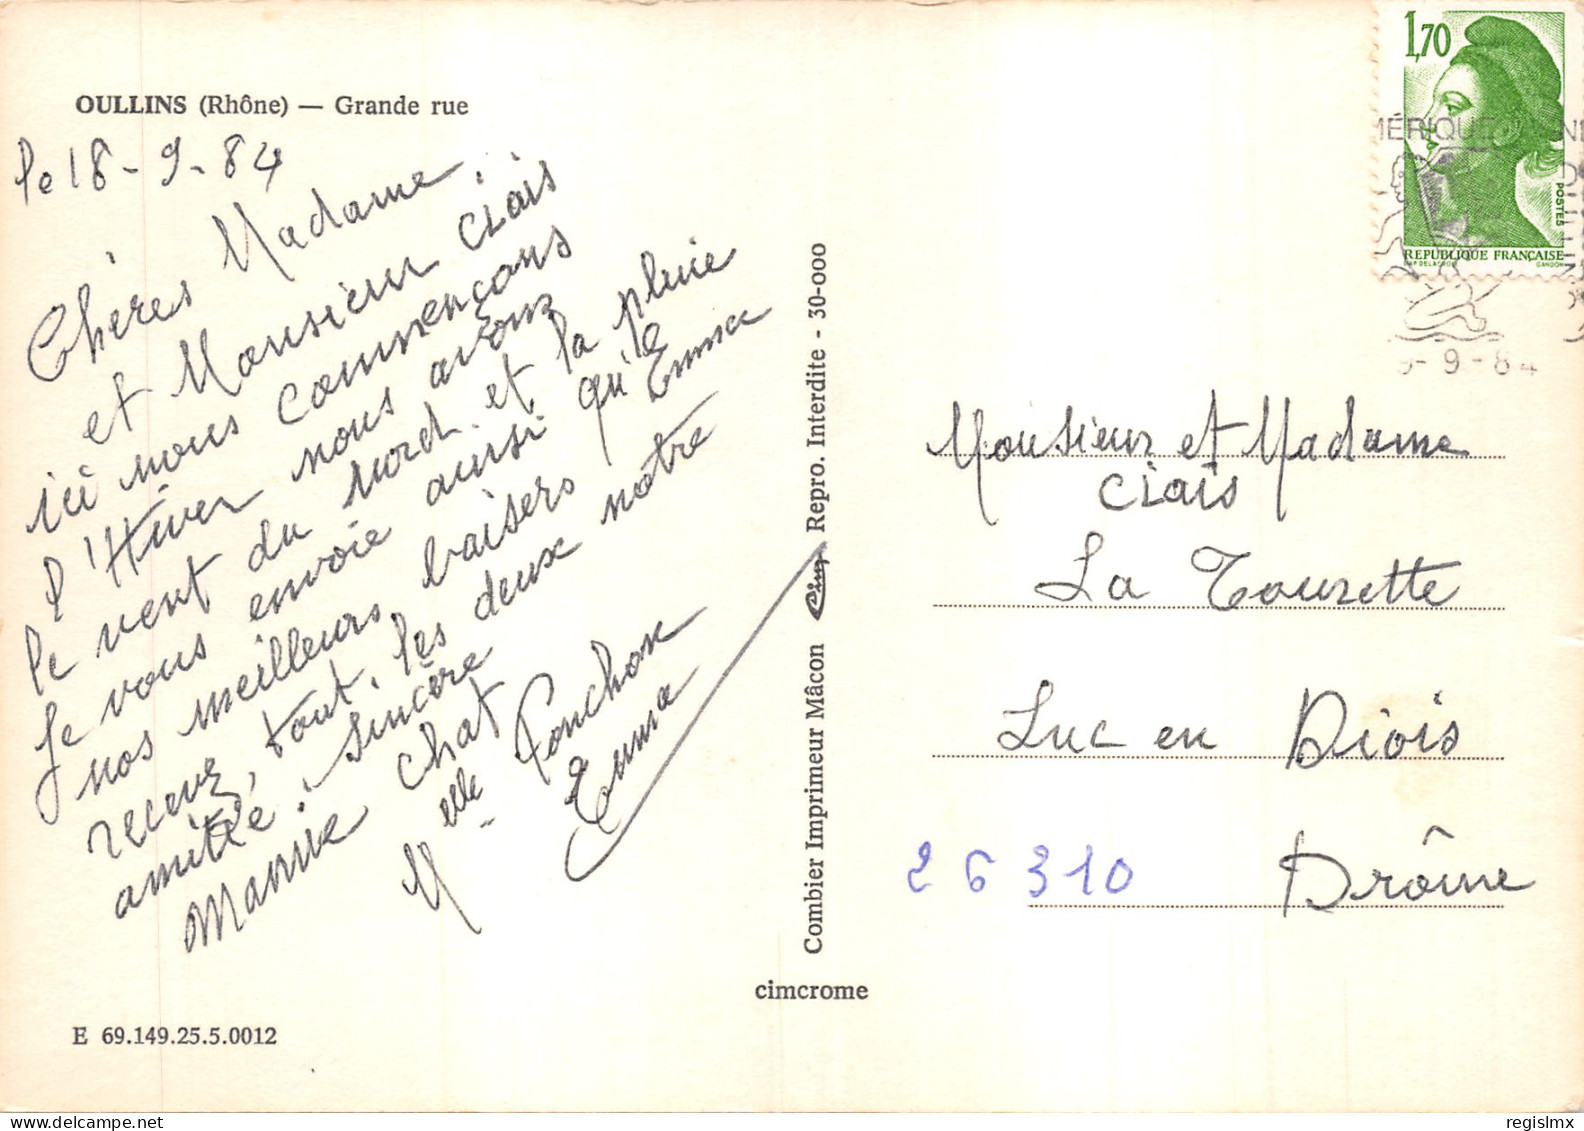 OULLINS (Rhône) — Grande rue
le 18-9-84
Chères Madame
et Monsieur Clais
ici nous commençons
l'Hiver nous avons
le vent du Nord et la pluie
Je vous envoie ainsi qu'Emma
nos meilleurs baisers
recevez tout les deux notre
amitié sincère
Mamie Chat
Melle Ponchon
Emma
E 69.149.25.5.0012
cimcrome
Combier Imprimeur Mâcon Cim Repro. Interdite - 30-000
1,70
POSTES
REPUBLIQUE FRANÇAISE
GANDON
MÉRIQUE
9-84
Monsieur et Madame
Clais
La Tourette
Luc en Diois
26310 Drôme
regislmx